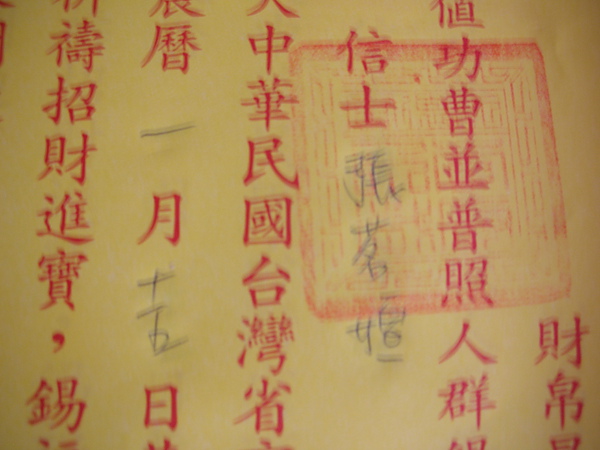 財帛
值功曹並普照人群錫
信士張
大中華民國台灣省
農曆一月十五日
祈禱招財進寶，錫福